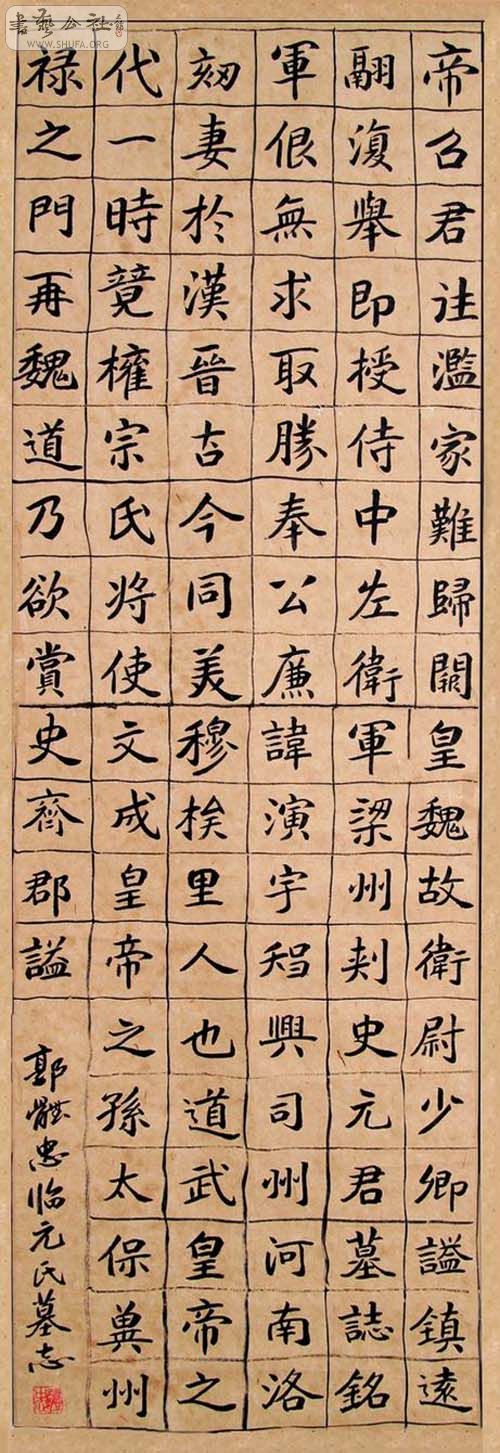 書藝公社
WWW.SHUFA.ORG
帝召君往濫家難歸闕皇魏故衛尉少卿謚鎮遠
翮復舉即授侍中左衛軍梁州刺史元君墓誌銘
軍佷無求取勝奉公廉諱演字智興司州河南洛
妻於漢晉古今同美穆族里人也道武皇帝之
代一時竟權宗氏將使文成皇帝之孫太保冀州
祿之門再魏道乃欲賞史齊郡謚
郭體忠临元氏墓志